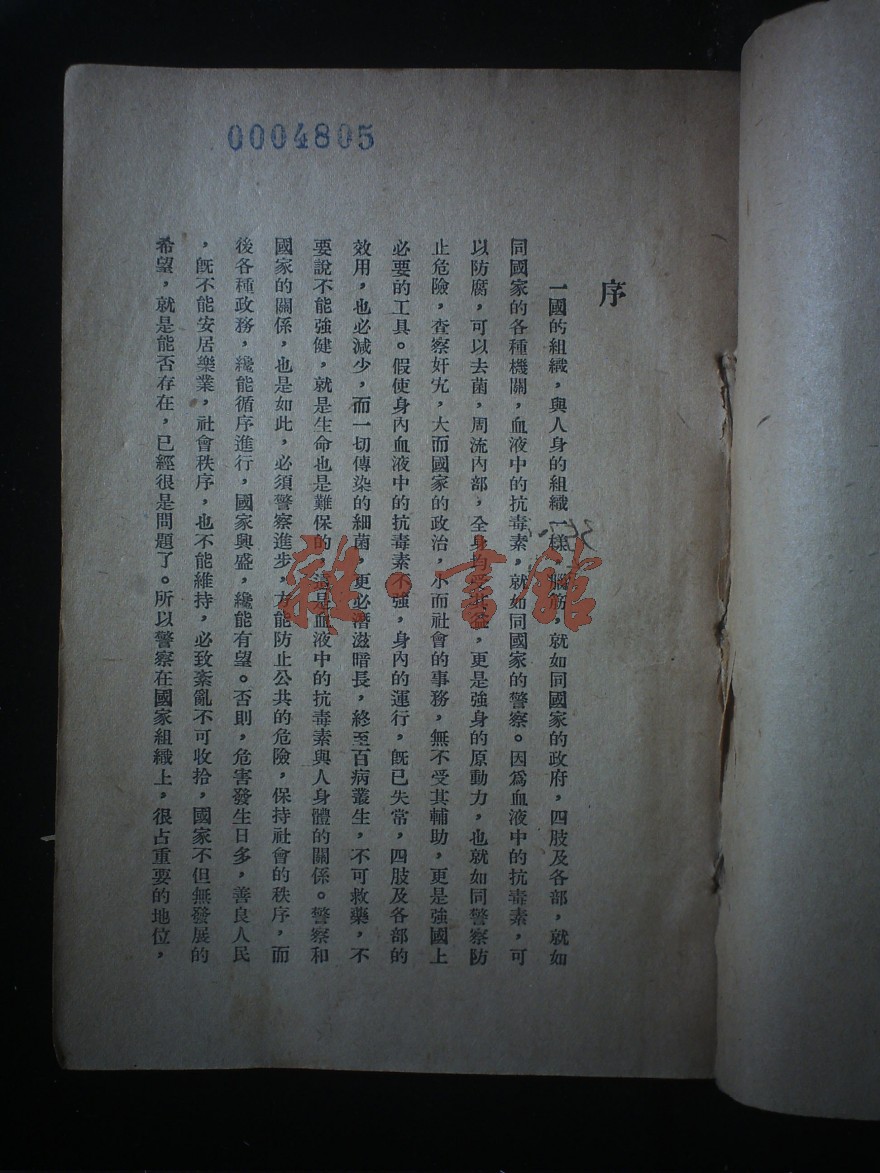 0004805
序
一國的組織，與人身的組織一樣，腦筋，就如同國家的政府，四肢及各部，就如
同國家的各種機關，血液中的抗毒素，就如同國家的警察。因爲血液中的抗毒素，可
以防腐，可以去菌，周流內部，全身均受其益，更是強身的原動力，也就如同警察防
止危險，查察奸宄，大而國家的政治，小而社會的事務，無不受其輔助，更是強國上
必要的工具。假使身內血液中的抗毒素不強，身內的運行，旣已失常，四肢及各部的
效用，也必減少，而一切傳染的細菌，更必潛滋暗長，終至百病叢生，不可救藥，不
要說不能強健，就是生命也是難保的，這是血液中的抗毒素與人身體的關係。警察和
國家的關係，也是如此，必須警察進步，方能防止公共的危險，保持社會的秩序，而
後各種政務，纔能循序進行，國家興盛，纔能有望。否則，危害發生日多，善良人民
，旣不能安居樂業，社會秩序，也不能維持，必致紊亂不可收拾，國家不但無發展的
希望，就是能否存在，已經很是問題了。所以警察在國家組織上，很占重要的地位，
雜·書館